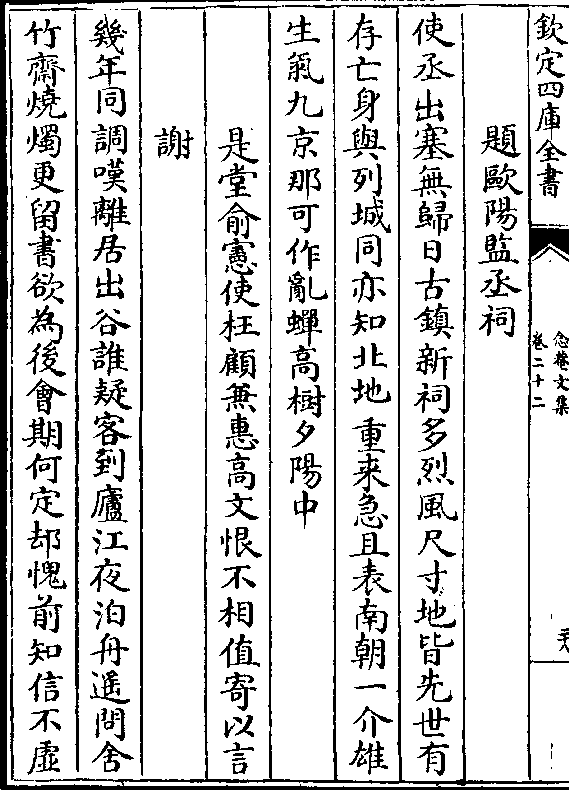 欽定四庫全書
卷二十二
題歐陽監丞祠
使丞出塞無歸日古鎮新祠多烈風尺寸地皆先世有
存亡身與列城同亦知北地重来急且表南朝一介雄
生氣九京那可作亂蟬高樹夕陽中
是堂俞憲使枉顧兼惠高文恨不相值寄以言
謝
幾年同調嘆離居出谷誰疑客到廬江夜泊舟遥問舍
竹齋燒燭更留書欲為後會期何定却愧前知信不虚